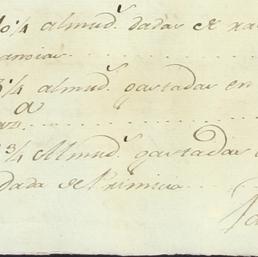 ¼ almud.ˢ dadas de ra
ancias
¼ almud.ˢ gastadas en
a
¾ Almud.ˢ gastadas
dada de Primicia